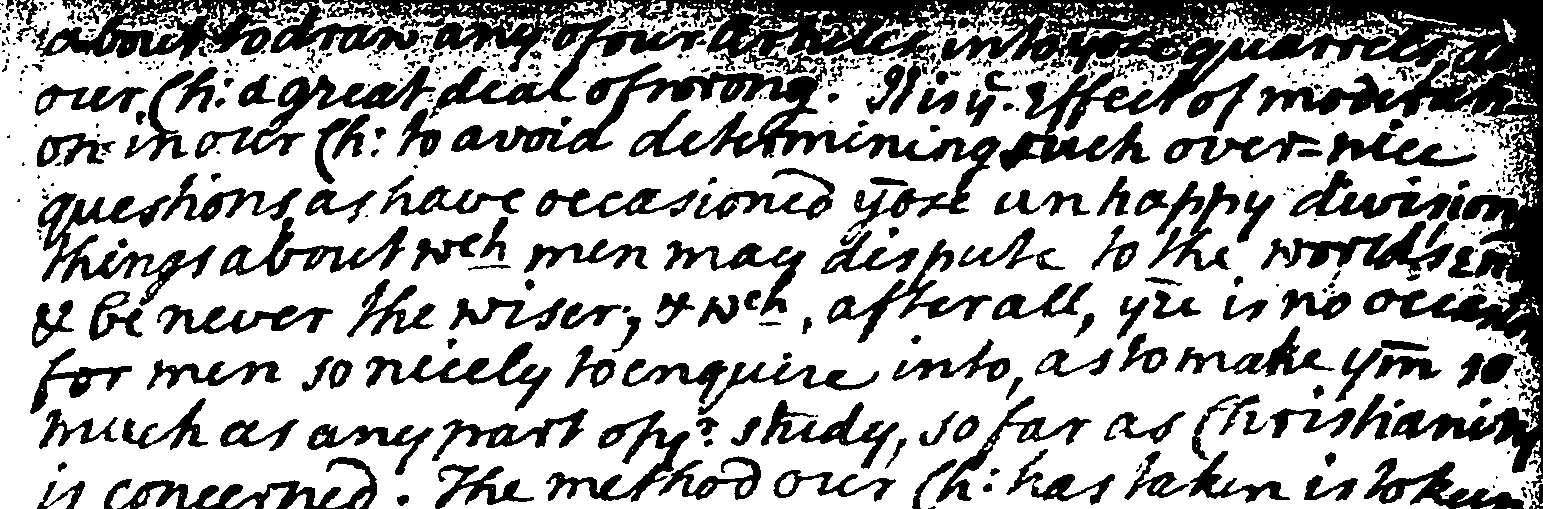 about to draw any of our Articles into yose quarrels, do
our Ch: a great deal of wrong. It is ye. Effect of moderati-
on in our Ch: to avoid determining such over=nice
questions as have occasioned yose unhappy division
things about wch men may dispute to the world's end
& be never the wiser; & wch, after all, yre is no occasion
for men so nicely to enquire into, as to make ym so
much as any part of yr study, so far as Christianity
is concerned. The method our Ch: has taken is to keep